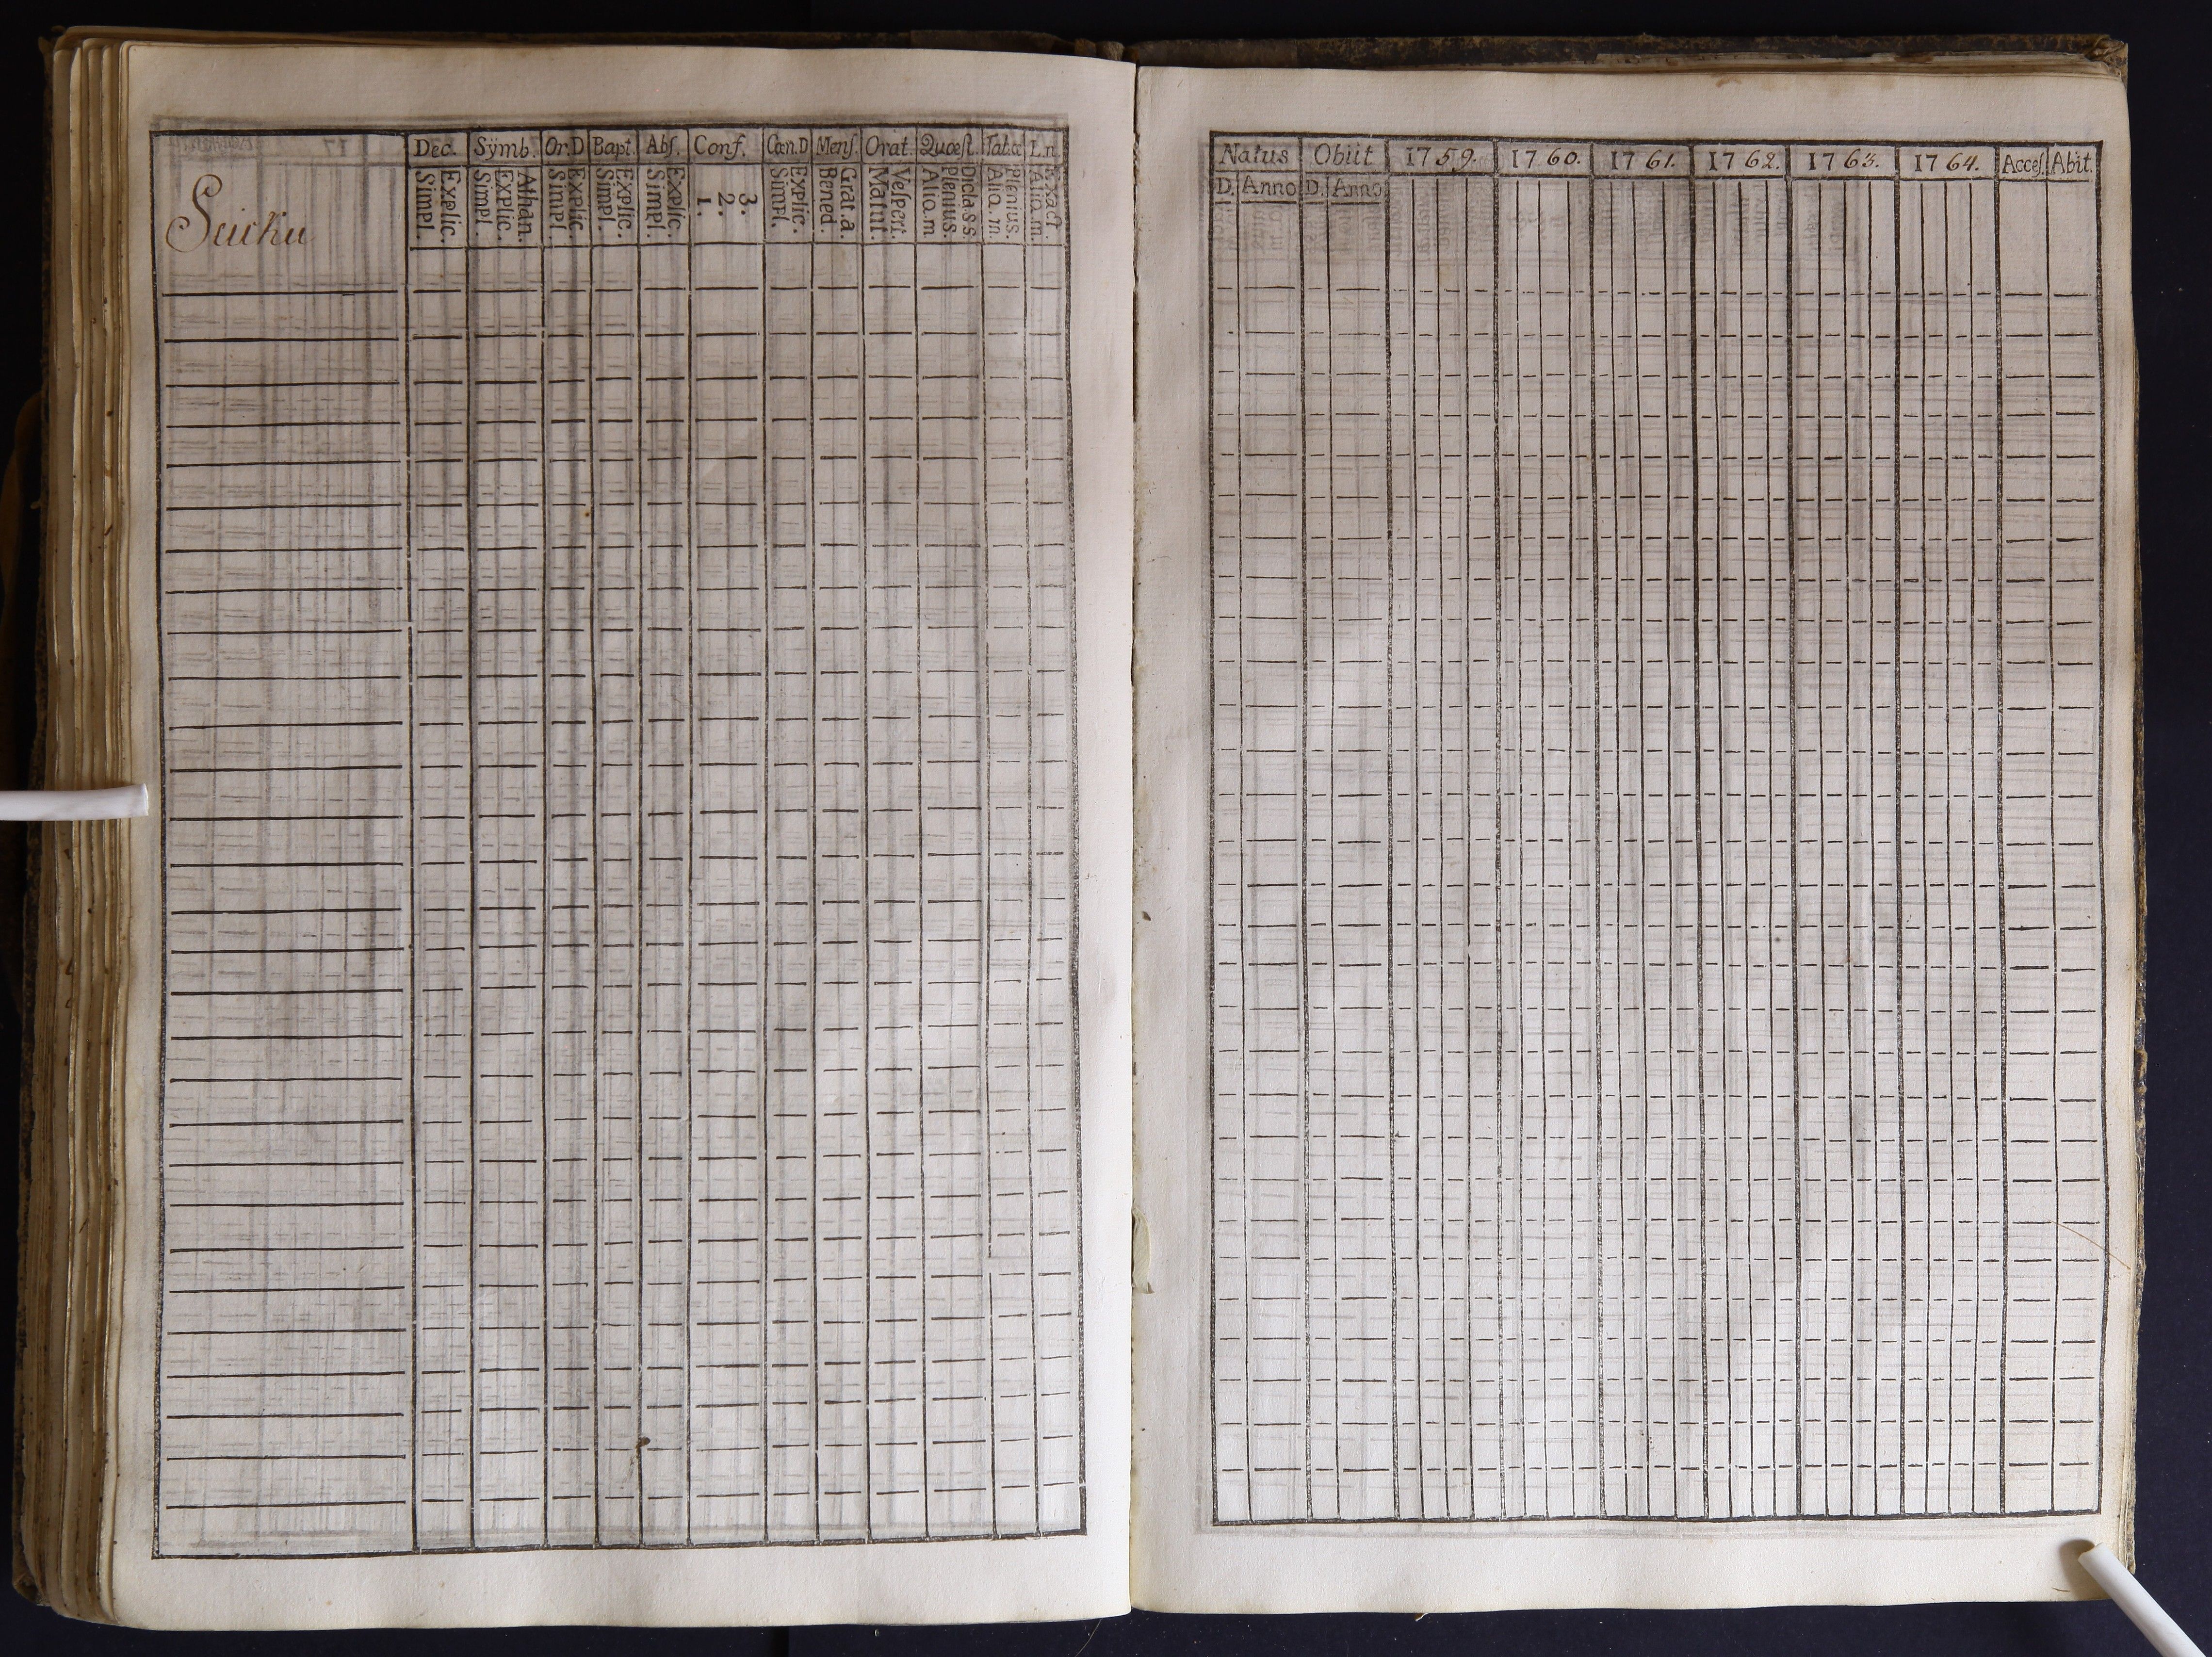 Dec. Sÿmb. Or.D Bapt. Abſ. Conf. Cœn.D Menſ. Orat. Quœſt. Tab.œ L.n
Simpl. Explic. Simpl. Explic. Athan. Simpl. Explic. Simpl. Explic. Simpl. Explic. 1. 2. 3. Simpl. Explic. Bened. Grat.a. Matut. Veſpert. Aliq.m Plenius. Dicta s s. Aliq.m. Plenius. Aliq.m. Exact.
Natus Obiit 1759. 1760. 1761. 1762. 1763. 1764. Acceſ. Abit.
D. Anno D. Anno